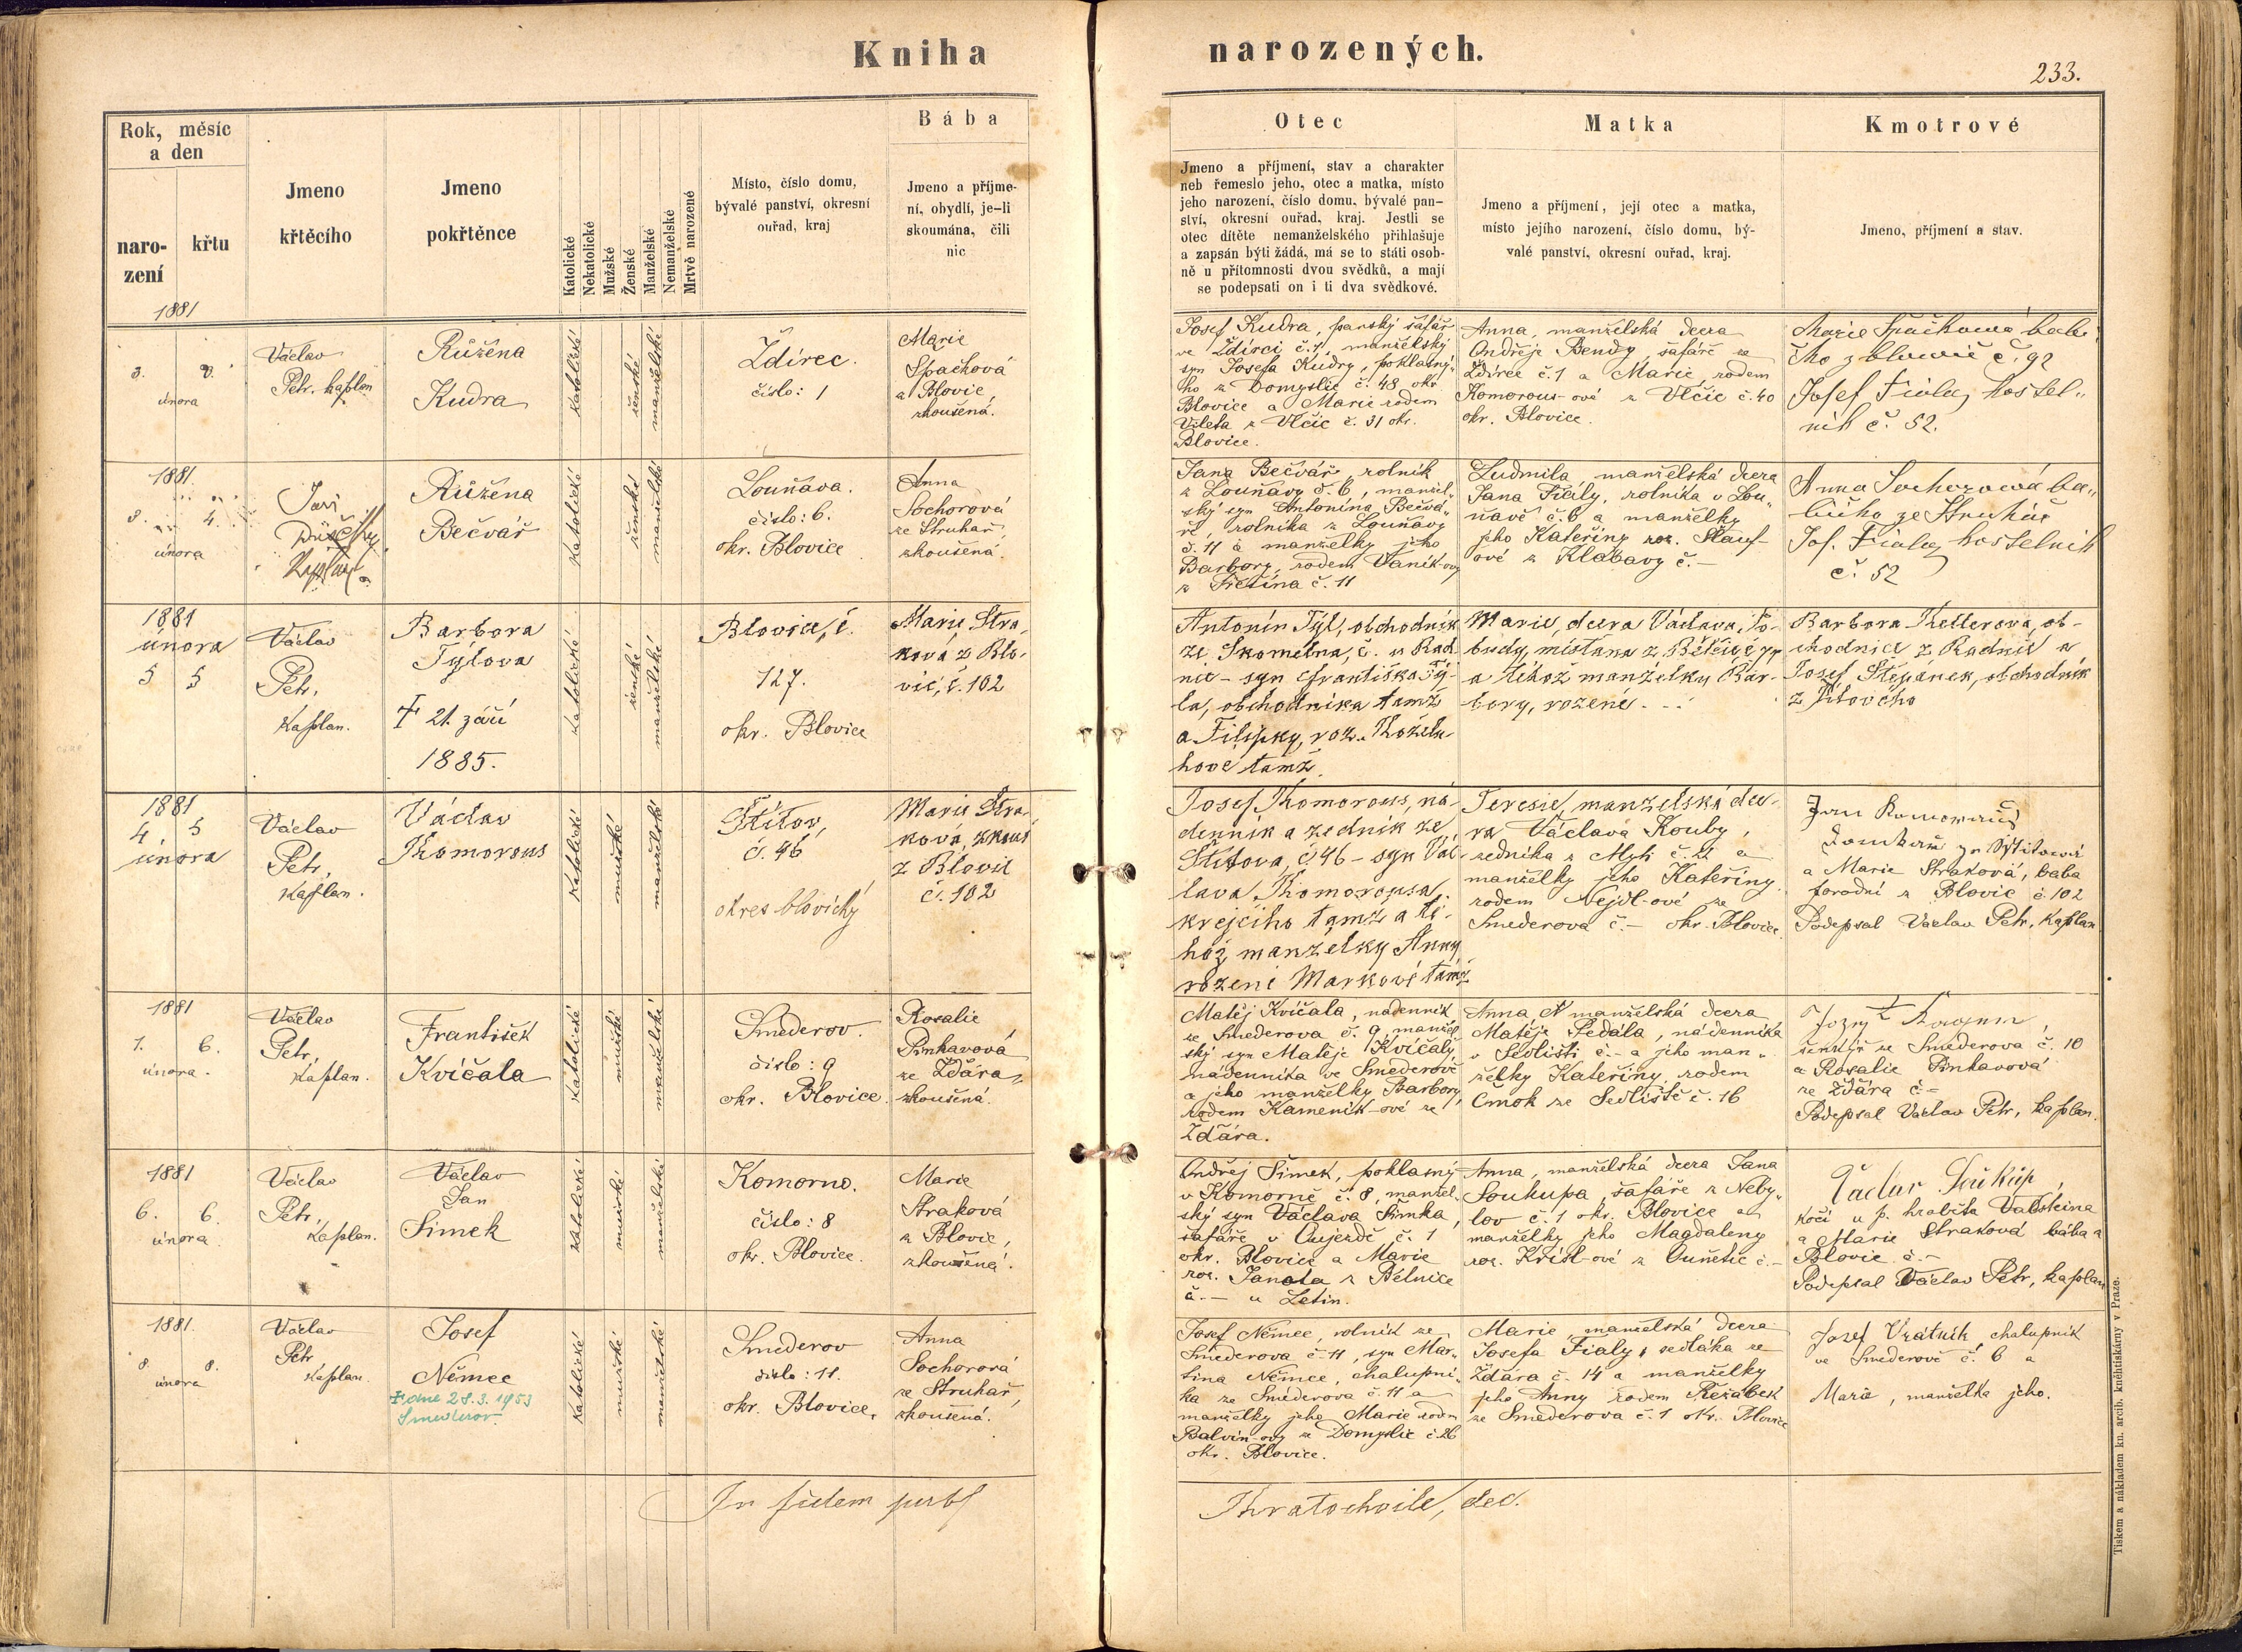 Kniha narozených.
233.
Rok, měsíc
a den
naro-
zení
křtu
Jmeno
křtěcího
Jmeno
pokřtěnce
Katolické
Nekatolické
Mužské
Ženské
Manželské
Nemanželské
Mrtvě narozené
Místo, číslo domu,
bývalé panství, okresní
ouřad, kraj
Bába
Jmeno a příjme-
ní, obydlí, je-li
skoumána, čili
nic
Otec
Jmeno a příjmení, stav a charakter
neb řemeslo jeho, otec a matka, místo
jeho narození, číslo domu, bývalé pan-
ství, okresní ouřad, kraj. Jestli se
otec dítěte nemanželského přihlašuje
a zapsán býti žádá, má se to státi osob-
ně u přítomnosti dvou svědků, a mají
se podepsati on i ti dva svědkové.
Matka
Jmeno a příjmení, její otec a matka,
místo jejího narození, číslo domu, bý-
valé panství, okresní ouřad, kraj.
Kmotrové
Jmeno, příjmení a stav.
1881
3.
února
Václav
Petr. kaplan
Růžena
Kudra
katolické
ženské
manželské
Ždírec.
číslo: 1
Marie
Špačková
z Blovic,
zkoušená.
Josef Kudra, panský šafář
ve Ždírci č. 1, manželský
syn Josefa Kudry, poklasný-
ho z Domyslic č. 48 okr.
Blovice a Marie rodem
z Vlčic č. 31 okr.
Blovice.
Anna, manželská dcera
Ondřeje Bendy, šafáře ze
Ždírce č. 1 a Marie, rodem
Komorous-ové z Vlčic č. 40
okr. Blovice.
Marie Špačkowá babi
čího z blowic č. 92
Josef Fiala, kostel„
ník č. 52.
1881
3. 4.
února
Jan
Růžena
Bečvář
katolické
ženské
manželské
Louňava.
číslo: 6.
okr. Blovice
Anna
Sochorová
ze Struhař,
zkoušená.
Jana Bečváře, rolník
z Louňavy č. 6, manžel„
ský syn Antonína Bečvá„
ře, rolníka z Louňavy
č. 11 a manželky jeho
Barbory, rodem Vaník-ovy
č. 11
Ludmila manželská dcera
Jana Fialy, rolníka v Lou„
ňavě č. 6 a manželky
jeho Kateřiny roz.
ové z Klabavy č. –
Anna Sochorowá ba„
ze Struhař
Jos. Fiala, kostelník
č. 52
1881
února
5 5
Václav
Petr,
kaplan.
Barbora
Týlova
† 21. září
1885.
katolické
ženské
manželské
Blovice, č.
127.
okr. Blovice
Marie Stra-
ková z Blo-
vic, č. 102
Antonín Týl, obchodník
ze Skomelna, č. u Rad
nic – syn Františka Tý-
la, obchodníka tamž
a Filipky, roz.
hové tamž.
Marie, dcera Václava
a téhož manželky Bar-
bory, rozené . . .
Barbora Kellerova, ob-
chodnice z Radnic a
Josef Štěpánek, obchodník
z
1881
4. 5
února
Václav
Petr,
kaplan.
Václav
Komorous
katolické
mužské
manželské
Štítov,
č. 46
okres blovický
Marie Stra-
ková, zkouš
z Blovic
č. 102
Josef Komorous, ná-
denník a zedník ze
Štítova, č. 46 – syn Vác-
lava Komorousa,
krejčího tamž a té-
hož manželky Anny,
rozené Markové tamž
Teresie, manželská dce-
ra Václava Kouby,
zedníka z č. 21 a
manželky jeho Kateřiny
rodem Nejdl-ové ze
Smederova č. – okr. Blovice.
Jan Komorous
a Marie Straková, baba
porodní z Blovic č. 102
Podepsal Václav Petr, kaplan
1881
1. 6.
února.
Václav
Petr,
kaplan.
František
Kvíčala
katolické
mužské
manželské
Smederov.
číslo: 9
okr. Blovice.
Rosalie
Pinkavová
ze Ždára,
zkoušená.
Matěj Kvíčala, nadenník
ze Smederova č. 9, manžel
ský syn Matěje Kvíčaly,
nadenníka ve Smederově
a jeho manželky Barbory,
rodem Kameník-ové ze
Ždára.
Anna manželská dcera
Matěje Sedála, nádenníka
v Sedlišti č. – a jeho man„
želky Kateřiny, rodem
Čmok ze Sedliště č. 16
ze Smederova č. 10
a Rosalie Pinkavová
ze Ždára č –
Podepsal Václav Petr, kaplan.
1881
6. 6.
února
Václav
Petr,
kaplan.
Václav
Jan
Šimek
katolické
mužské
manželské
Komorno.
číslo: 8
okr. Blovice.
Marie
Straková
z Blovic,
zkoušená.
Ondřej Šimek, poklasný
v Komorně č. 8, manžel.
ský syn Václava Šimka,
šafáře v Oujezdě č. 1
okr. Blovice a Marie
roz. Janota z Bělnice
č. – u Letin.
Anna, manželská dcera Jana
Soukupa, šafáře z Neby„
lov č. 1 okr. Blovice a
manželky jeho Magdaleny
roz. z Ounětic č. –
Václav Soukup,
kočí u p. hraběte Valdsteina
a Marie Straková bába z
Blovic č. –
Podepsal Václav Petr, kaplan
1881.
8. 8.
února
Václav
Petr
kaplan.
Josef
Němec
† dne 28.3.1953
Smederov.
katolické
mužské
manželské
Smederov
číslo: 11.
okr. Blovice.
Anna
Sochorová
ze Struhař,
zkoušená.
Josef Němec, rolník ze
Smederova č. 11, syn Mar„
tina Němce, chalupní„
ka ze Smederova č. 11 a
manželky jeho Marie rodem
Balvín-ovy z Domyslic č. 26
okr. Blovice.
Marie, manželská dcera
Josefa Fialy, sedláka ze
Ždára č. 14 a manželky
jeho Anny rodem Řežábek
ze Smederova č. 1 okr. Blovice
Josef Vrátník, chalupník
ve Smederově č. 6 a
Marie, manželka jeho.
In fidem
Kratochvile, děd.
Tiskem a nákladem kn. arcib. knihtiskárny v Praze.